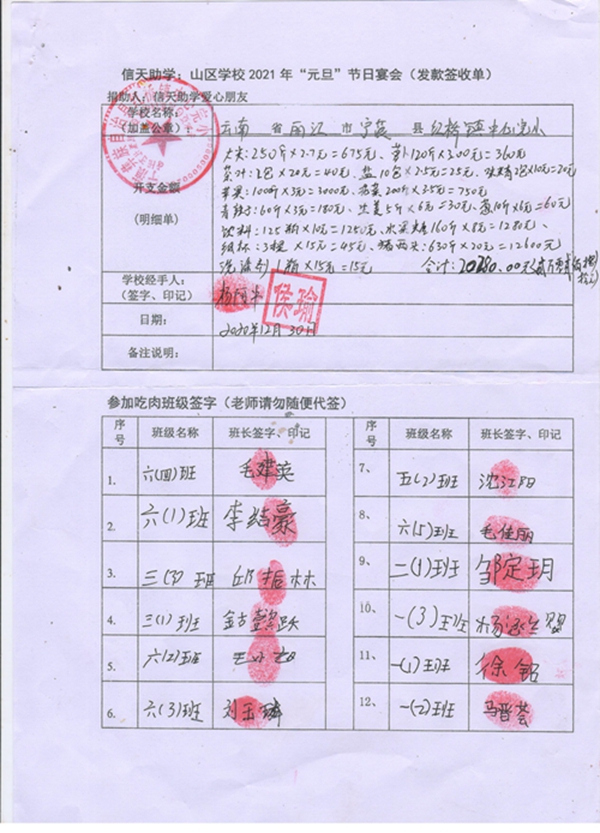 信天助学：山区学校2021年“元旦”节日宴会（发款签收单）
捐助人：信天助学爱心朋友
学校名称：
（加盖公章）
云南 省 丽江 市 宁蒗 县 红桥镇
开支金额
（明细单）
250斤×2.7元=675元、萝卜120斤×3.00元=360元
2包×20元=40元、盐10包×2.5元=25元、味精2包×10元=20元
苹果：1000斤×3元=3000元、200斤×3.75元=750元
60斤×3元=180元、生姜5斤×6元=30元、葱10斤×6元=60元
饮料：125瓶×10元=1250元、水果糖160斤×8元=1280元、
纸杯：3提×15元=45元、猪两头：630斤×20元=12600元
洗洁剂1瓶×15元=15元 合计：20280.00元
学校经手人：
（签字、印记）
侯瑜
日期：
2020年12月30日
备注说明：
参加吃肉班级签字（老师请勿随便代签）
序号 班级名称 班长签字、印记 序号 班级名称 班长签字、印记
1. 六(四)班 毛建英
2. 六(1)班 李结豪
3. 三(3)班 邱振林
4. 三(1)班
5. 六(2)班
6. 六(3)班 刘玉麟
7、 五(2)班 沈江阳
8、 六(5)班 毛佳丽
9、 二(1)班 邹定玥
10、 一(3)班
11、 一(1)班 徐铭
12、 一(2)班 马晋荟